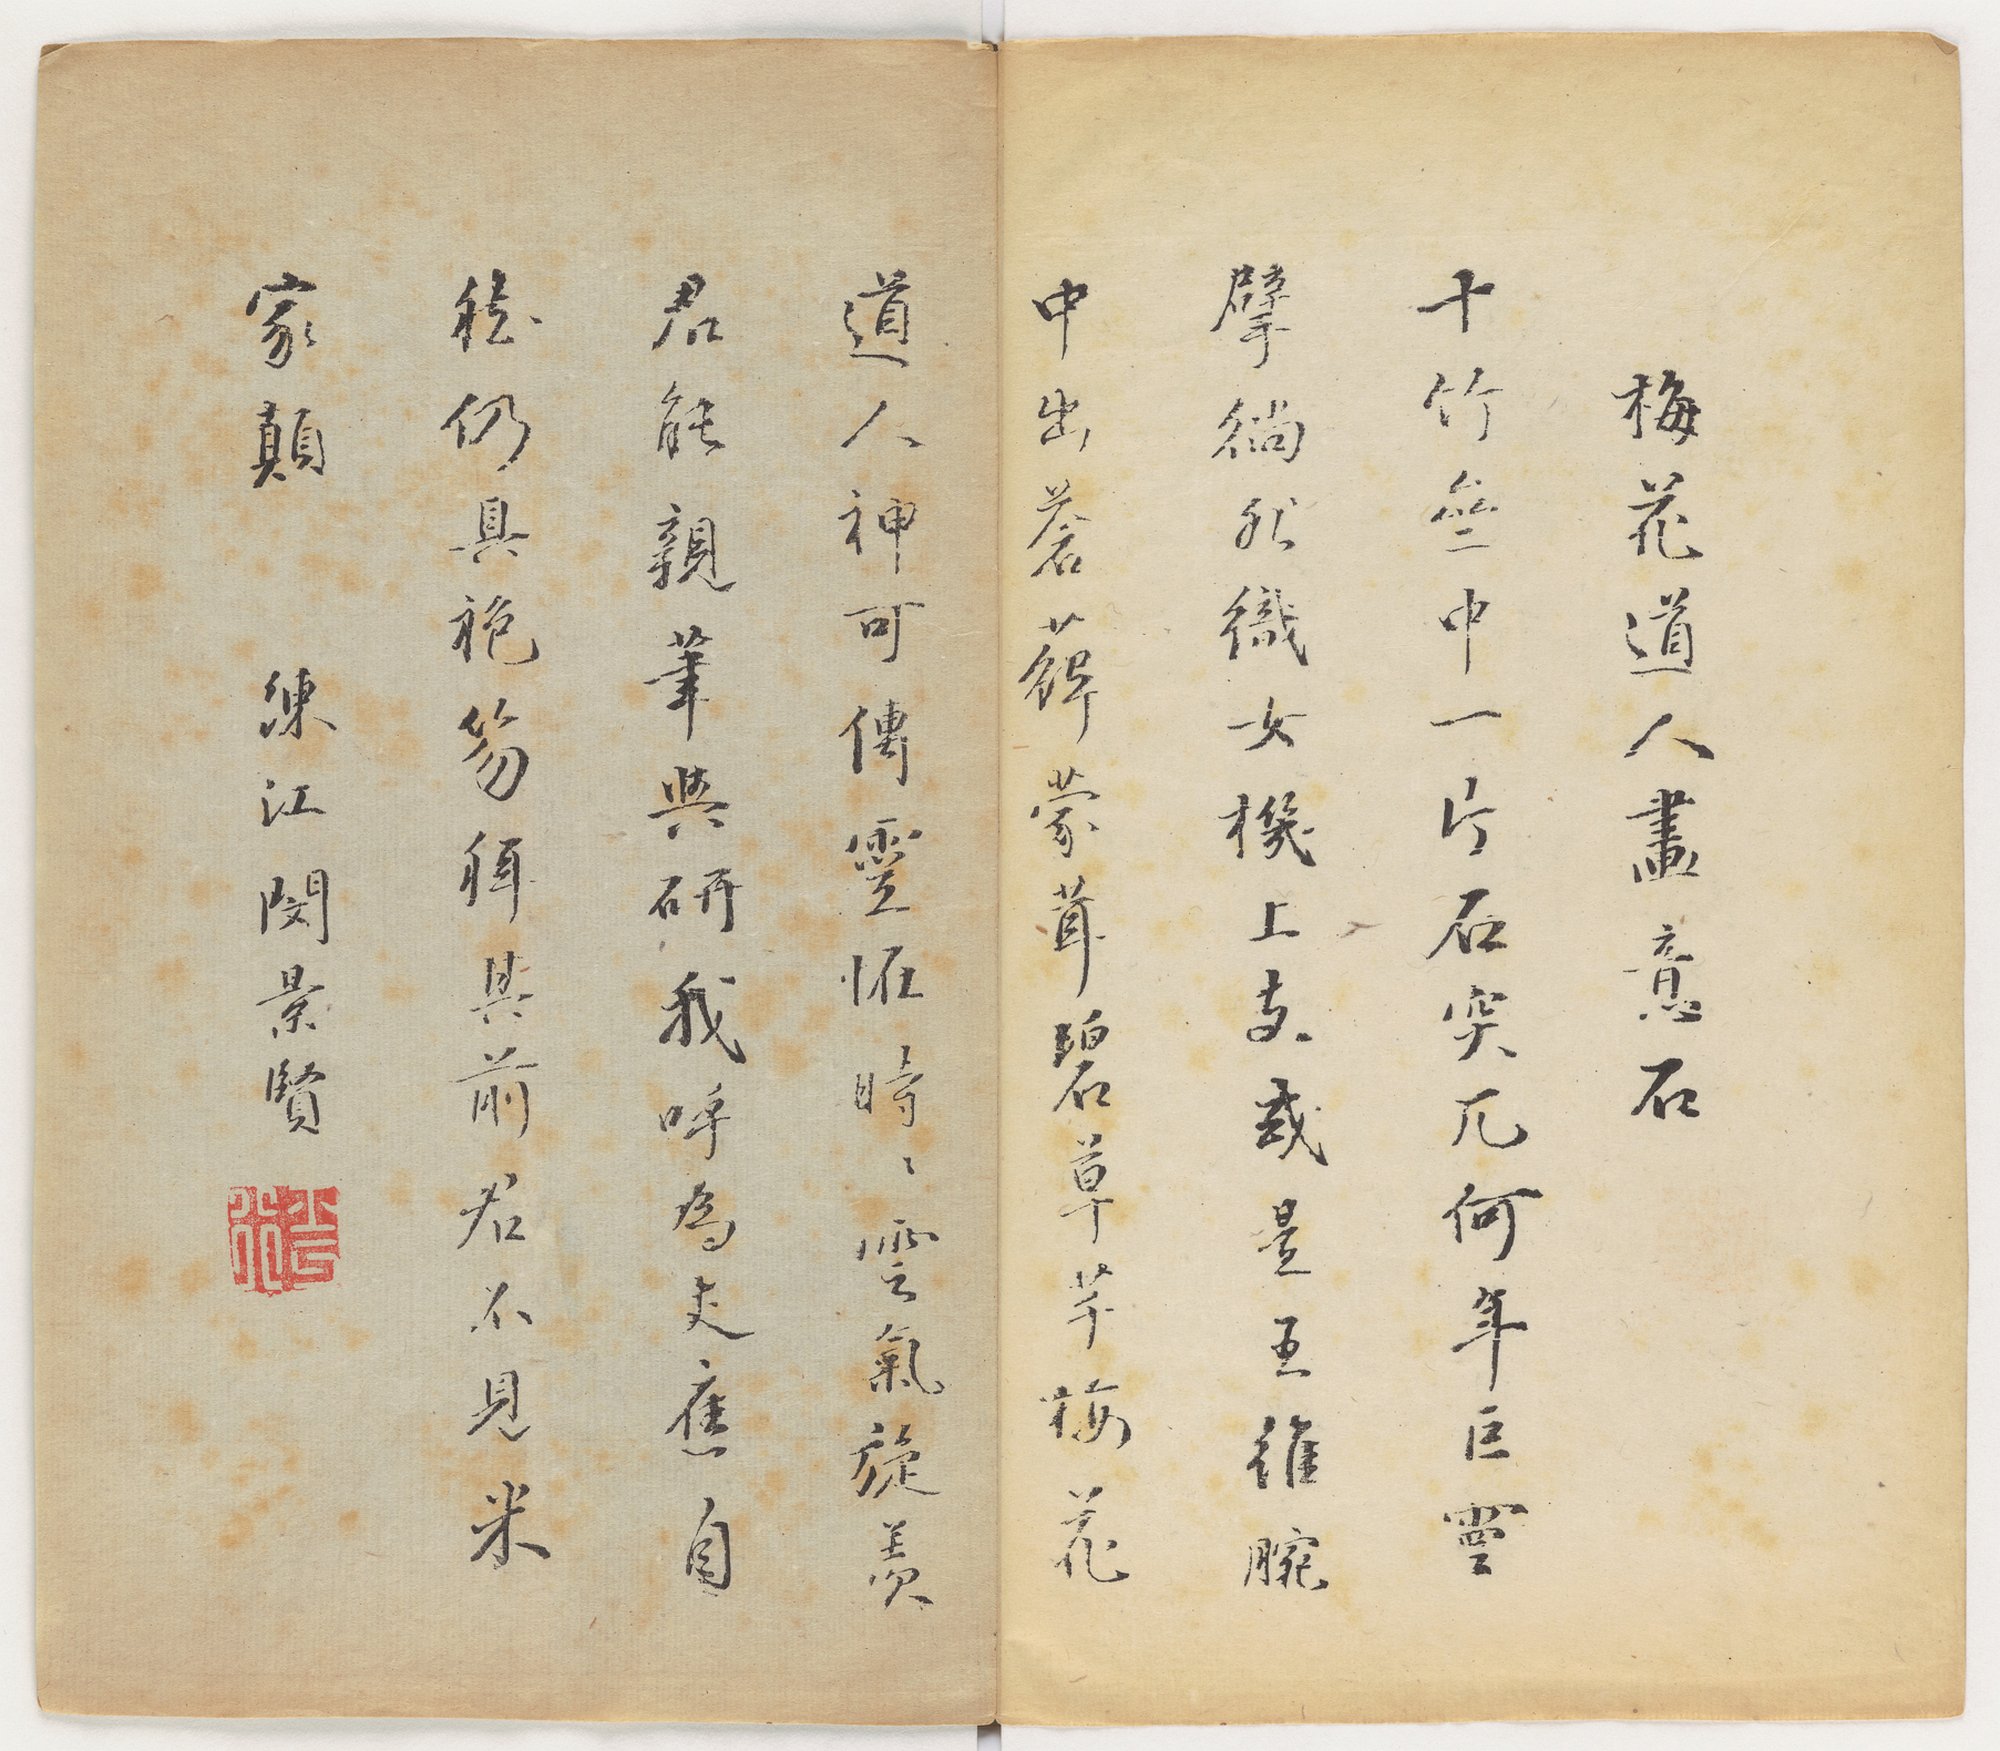 梅花道人畫意石
十竹亝中一片石突兀何年巨靈
擘徜然織女機上支或是王維腕
中出蒼薜蒙茸碧草芊梅花
道人神可傳靈怪時〻雲氣旋羨
君能親筆與研我呼為丈應自
仍具袍笏拜其前君不見米
家顛 練江閔景賢